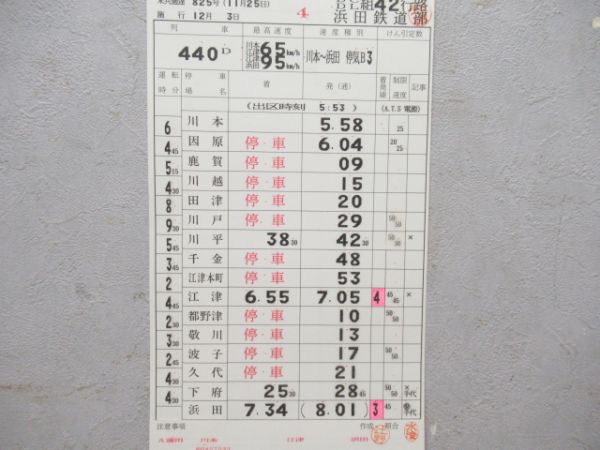 825号(11月25日) 組42行路
施行 12月 3日 4 浜田鉄道部
列 車 最高速度 速度種別 けん引定数
440D 川本 江津 65km/h 江津 浜田 95km/h 川本~浜田 停気B3
運転時分 停車場名 着 発(通) 着発線 制限速度 記事
(出区時刻 5:53) (A.T.S電源)
川本 5.58 25
6 因原 停・車 6.04 20 25
4 45 鹿賀 停・車 09
5 15 川越 停・車 15
4 30 田津 停・車 20
8 川戸 停・車 29 50 50
9 30 川平 38 30 42 30 50 50 ×
5 45 千金 停・車 48
3 45 江津本町 停・車 53
2 江津 6.55 7.05 4 45 45 ×
4 45 都野津 停・車 10 50 50
2 30 敬川 停・車 13
2 30 波子 停・車 17 50 50
2 45 久代 停・車 21
4 下府 25 30 28 45 50 50 × 千代
4 30 浜田 7.34 (8.01) 3 45 千代
注意事項 作成 照合